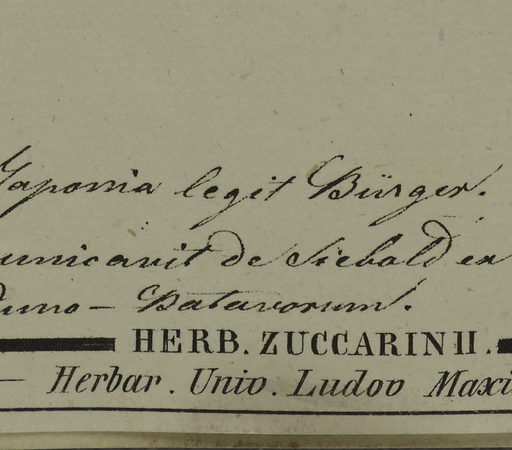 Japonia legit Bürger.
unicavit de Siebold ex
duno – Batavorum.
HERB. ZUCCARINII.
— Herbar. Univ. Ludov Maxi